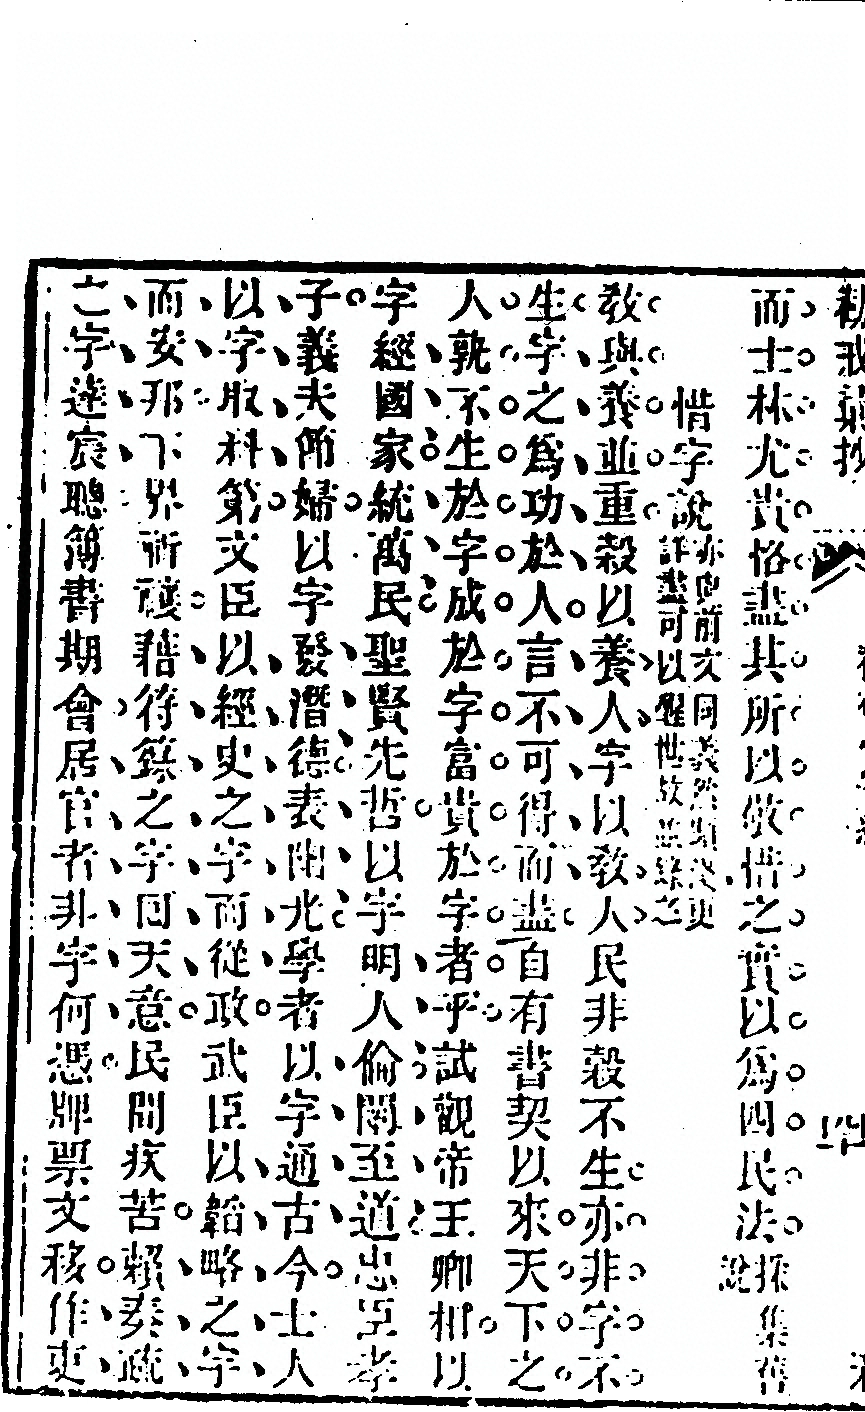 而士林尤貴恪盡其所以敬惜之實以爲四民法採集舊說
惜字說亦與前文同義然顯淺更詳盡可以醒世故並錄之
教與養並重穀以養人字以教人民非穀不生亦非字不
生字之爲功於人言不可得而盡自有書契以來天下之
人孰不生於字成於字富貴於字者乎試觀帝王卿相以
字經國家統萬民聖賢先哲以字明人倫闡至道忠臣孝
子義夫節婦以字發潛德表幽光學者以字通古今士人
以字取科第文臣以經史之字而從政武臣以韜略之字
而安邦下界祈禳藉符籙之字回天意民間疾苦賴奏疏
之字達宸聰簿書期會居官者非字何憑牌票文移作吏